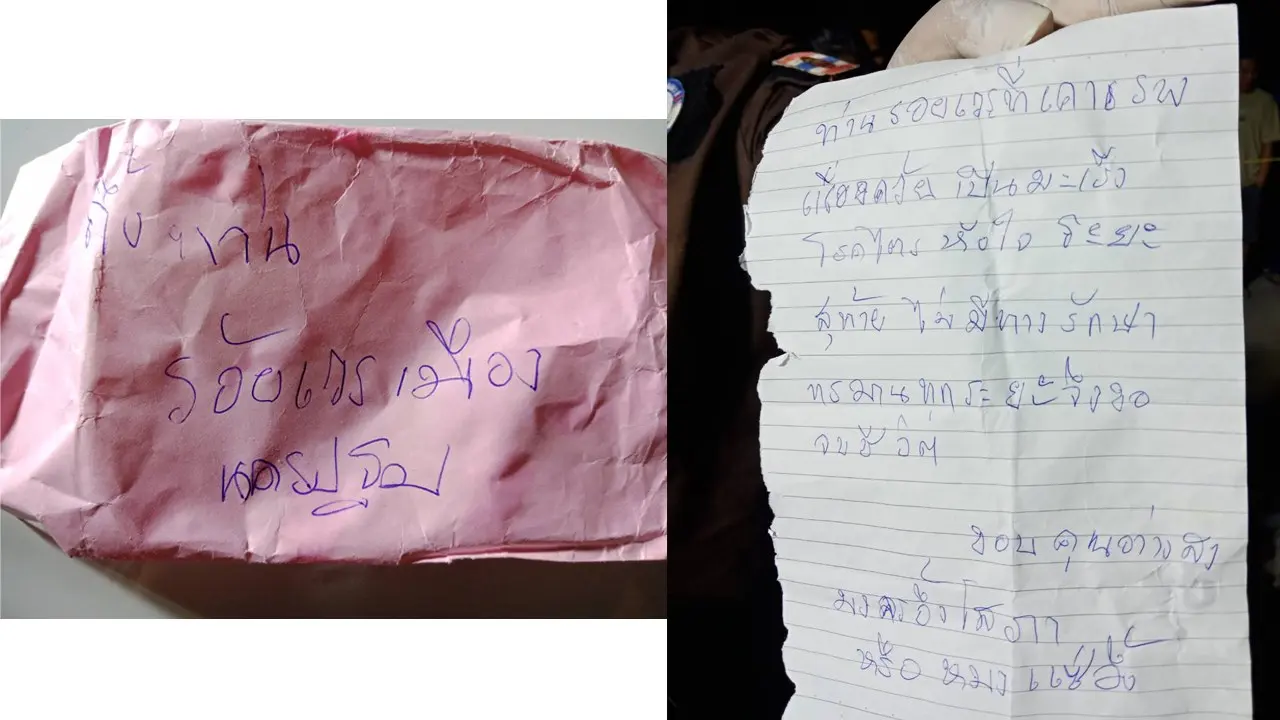 ร้อยเวรเมือง
นครปฐม
ท่านร้อยเวรที่เคารพ
เนื่องด้วย เป็นมะเร็ง
โรคไตร หัวใจ ระยะ
สุท้าย ไม่มีทางรักษา
ทรมานทุกระยะจึงขอ
จบชีวิต
ขอบคุณอ่างสูง
โสภา
หรือ